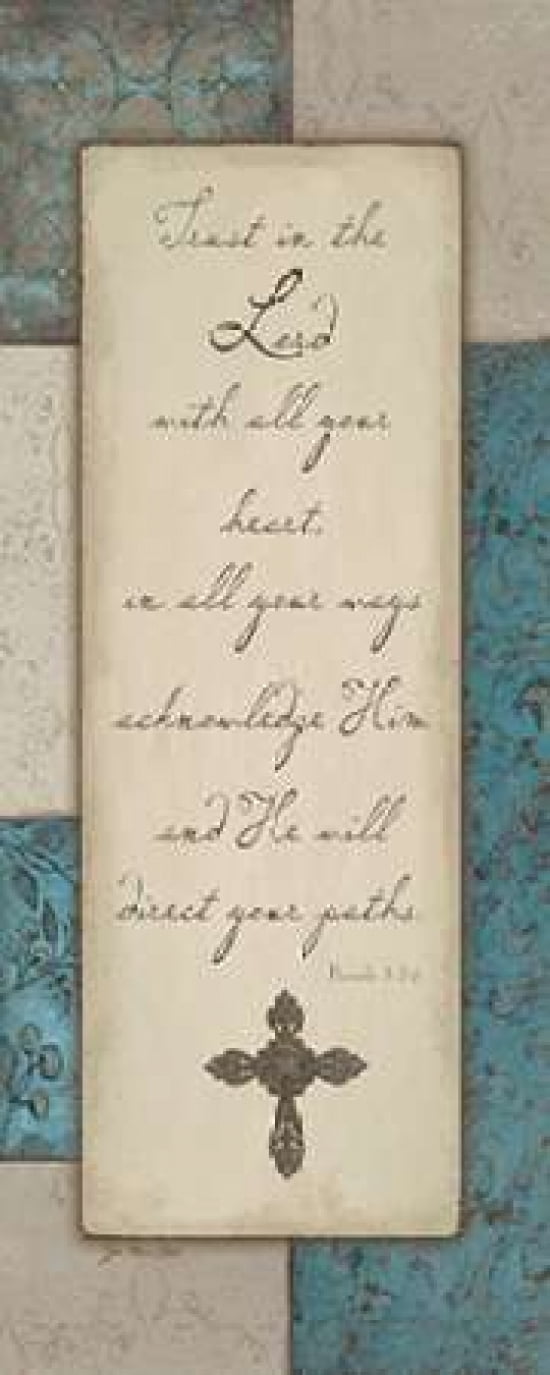 Trust in the
Lord
with all your
heart.
in all your ways
acknowledge Him
and He will
direct your paths